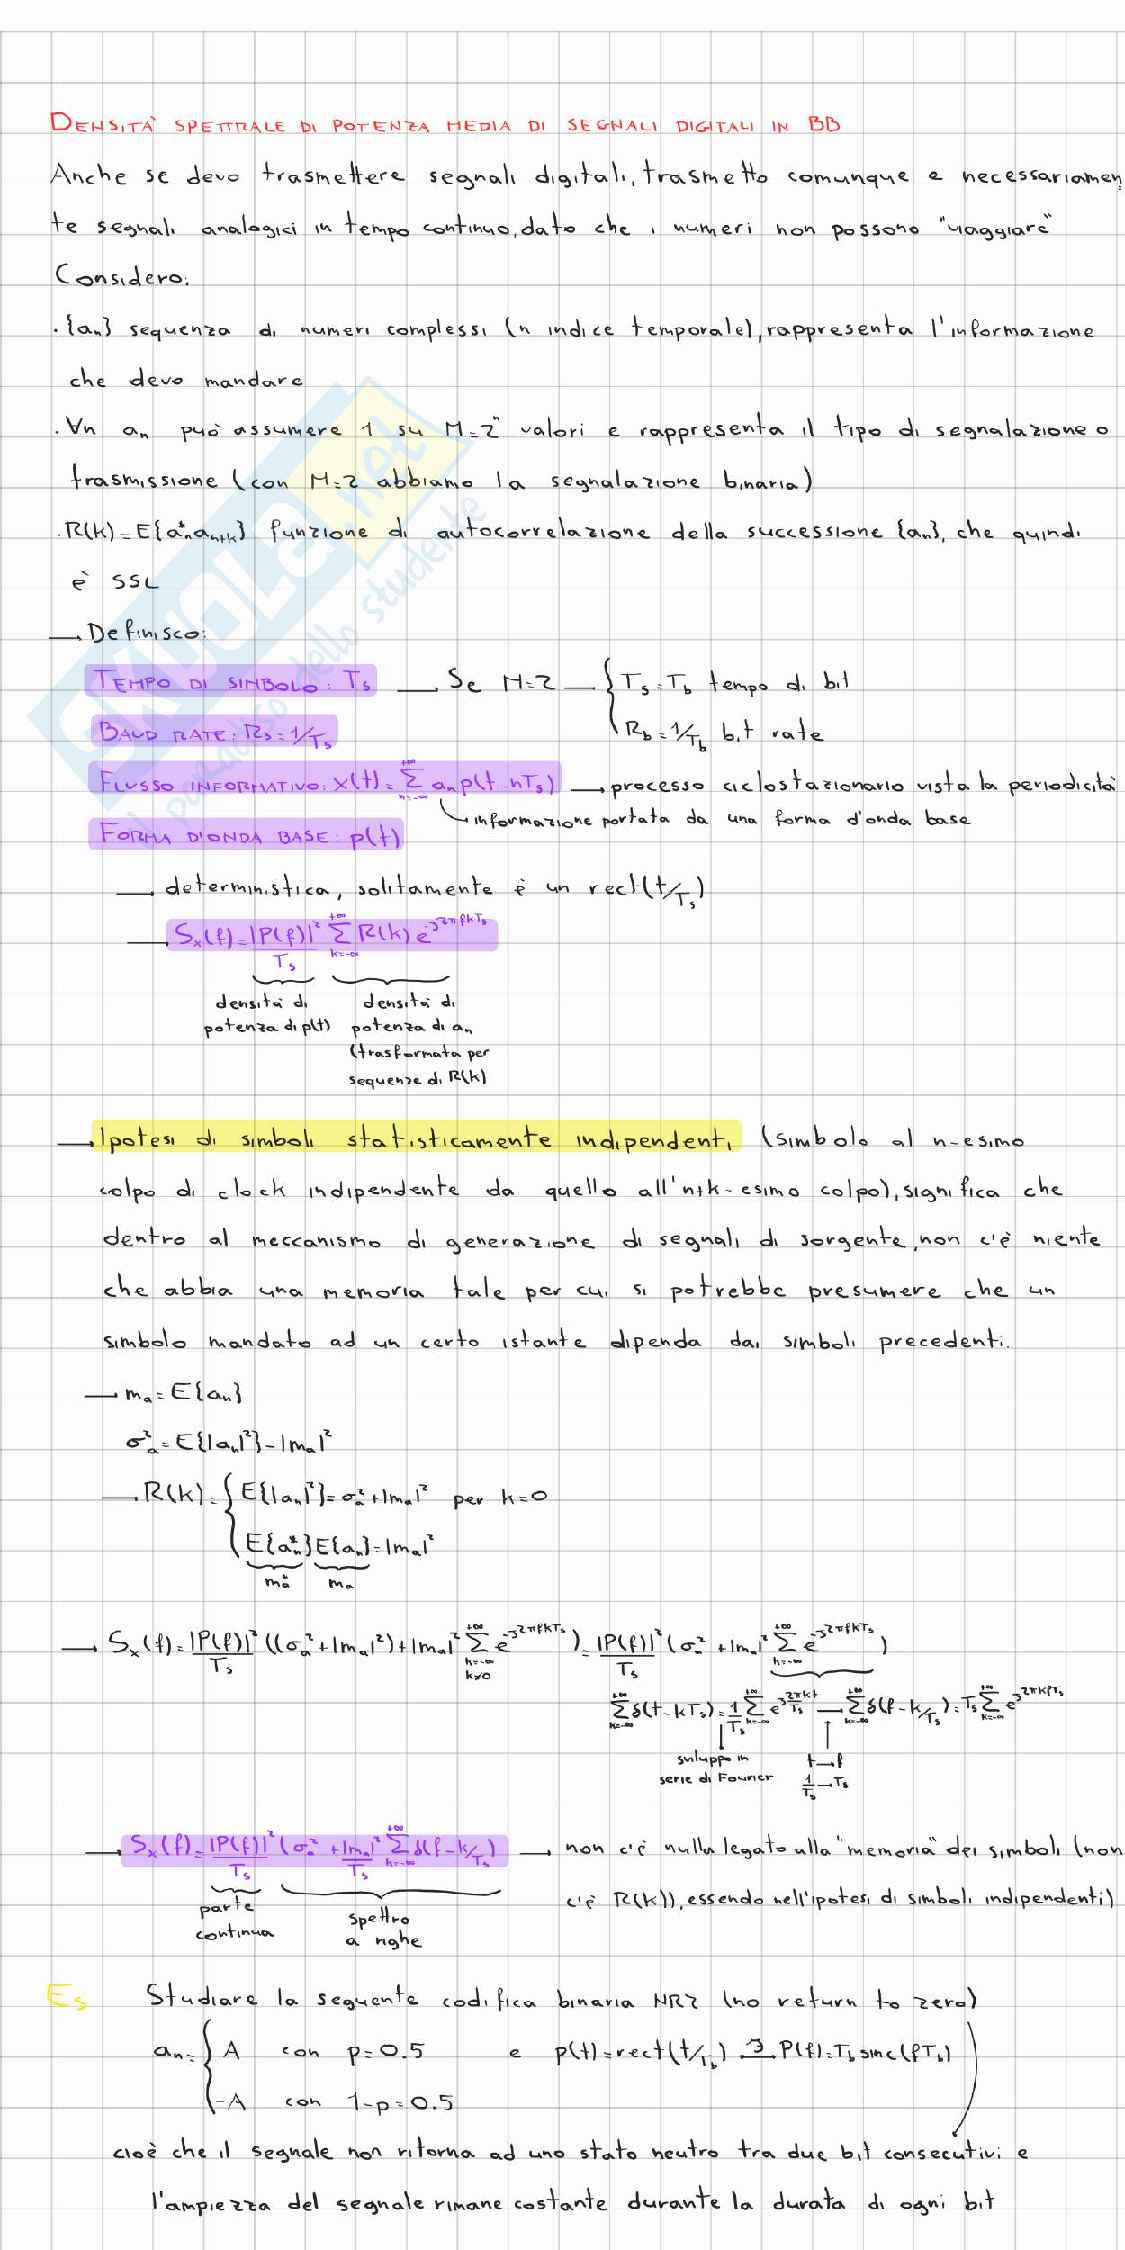 DENSITÀ SPETTRALE DI POTENZA MEDIA DI SEGNALI DIGITALI IN BB
Anche se devo trasmettere segnali digitali, trasmetto comunque e necessariamen
te segnali analogici in tempo continuo, dato che i numeri non possono "viaggiare"
Considero:
. {aₙ} sequenza di numeri complessi (n indice temporale), rappresenta l'informazione
che devo mandare
. ∀n aₙ può assumere 1 su M=2ⁿ valori e rappresenta il tipo di segnalazione o
trasmissione (con M=2 abbiamo la segnalazione binaria)
. R(k)=E{a*ₙaₙ₊ₖ} funzione di autocorrelazione della successione {aₙ}, che quindi
è SSL
→ Definisco:
TEMPO DI SIMBOLO: Ts — Se M=2 — { Ts=Tb tempo di bit
BAUD RATE: Rs=1/Ts Rb=1/Tb bit rate
FLUSSO INFORMATIVO: x(t)=∑ₙ₌₋∞^+∞ aₙp(t-nTs) → processo ciclostazionario vista la periodicità
informazione portata da una forma d'onda base
FORMA D'ONDA BASE: p(t)
→ deterministica, solitamente è un rect(t/Ts)
→ Sx(f)=|P(f)|²/Ts ∑ₖ₌₋∞^+∞ R(k)e^-j2πfkTs
densità di densità di
potenza di p(t) potenza di aₙ
(trasformata per
sequenze di R(k)
→ Ipotesi di simboli statisticamente indipendenti (simbolo al n-esimo
colpo di clock indipendente da quello all'n+k-esimo colpo), significa che
dentro al meccanismo di generazione di segnali di sorgente, non c'è niente
che abbia una memoria tale per cui si potrebbe presumere che un
simbolo mandato ad un certo istante dipenda dai simboli precedenti.
→ ma=E{aₙ}
σ²a=E{|aₙ|²}-|ma|²
→ R(k)={ E{|aₙ|²}=σ²a+|ma|² per k=0
E{a*ₙ}E{aₙ}=|ma|²
m*a ma
→ Sx(f)=|P(f)|²/Ts ((σ²a+|ma|²)+|ma|² ∑ₖ₌₋∞, k≠0^+∞ e^-j2πfkTs)=|P(f)|²/Ts (σ²a+|ma|² ∑ₖ₌₋∞^+∞ e^-j2πfkTs)
∑ₖ₌₋∞^+∞ δ(t-kTs)=1/Ts ∑ₖ₌₋∞^+∞ e^j2πkt/Ts → ∑ₖ₌₋∞^+∞ δ(f-k/Ts)=Ts ∑ₖ₌₋∞^+∞ e^j2πkfTs
sviluppo in t→f
serie di Fourier 1/Ts→Ts
→ Sx(f)=|P(f)|²/Ts (σ²a+|ma|²/Ts ∑ₖ₌₋∞^+∞ δ(f-k/Ts)) → non c'è nulla legato alla "memoria" dei simboli (non
c'è R(k)), essendo nell'ipotesi di simboli indipendenti)
parte spettro
continua a righe
Es Studiare la seguente codifica binaria NRZ (no return to zero)
aₙ={ A con p=0.5 e p(t)=rect(t/Tb) ℱ→ P(f)=Tb sinc(fTb)
-A con 1-p=0.5
cioè che il segnale non ritorna ad uno stato neutro tra due bit consecutivi e
l'ampiezza del segnale rimane costante durante la durata di ogni bit
SKUOLA.net
il paradiso dello studente